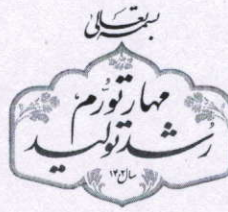 بسمه تعالی
مهار تورم
رشد تولید
سال ۱۴۰۲